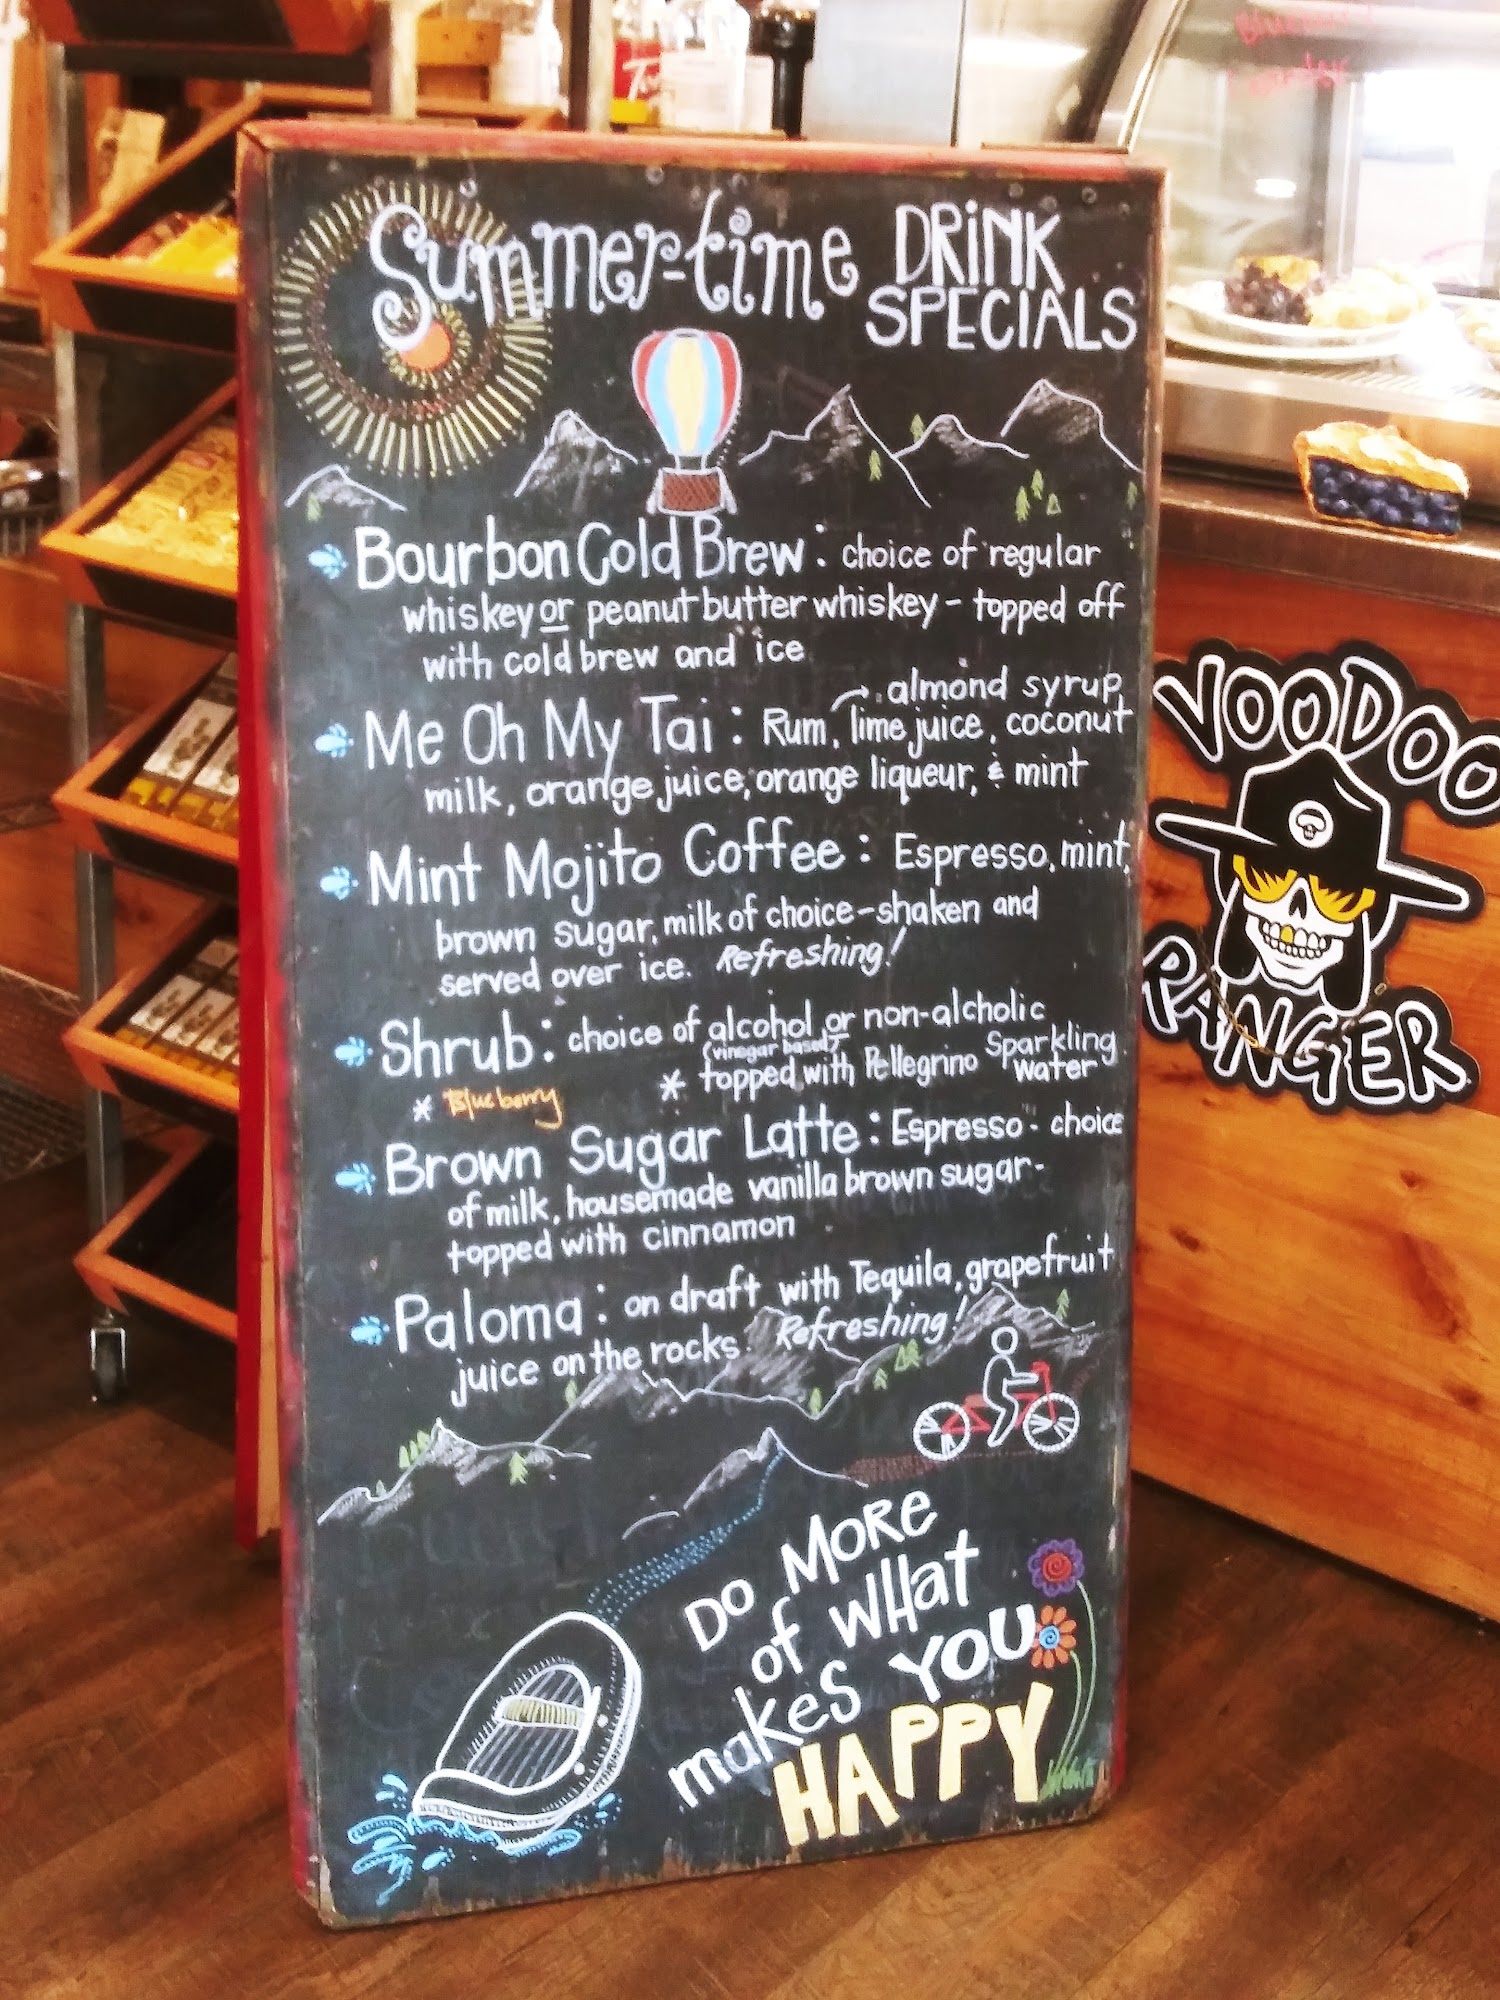 Summer-time DRINK
SPECIALS
Bourbon Cold Brew: choice of regular
whiskey or peanut butter whiskey - topped off
with cold brew and ice
almond syrup,
Me Oh My Tai: Rum, lime juice, coconut
milk, orange juice, orange liqueur, & mint
Mint Mojito Coffee: Espresso, mint,
brown sugar, milk of choice - shaken and
served over ice. Refreshing!
Shrub: choice of alcohol or non-alcholic
(vinegar based)
* topped with Pellegrino Sparkling
water
* Blueberry
Brown Sugar Latte: Espresso - choice
of milk, housemade vanilla brown sugar -
topped with cinnamon
Paloma: on draft with Tequila, grapefruit
juice on the rocks. Refreshing!
DO MORE
of WHat
makes YOU
HAPPY
VOODOO
RANGER